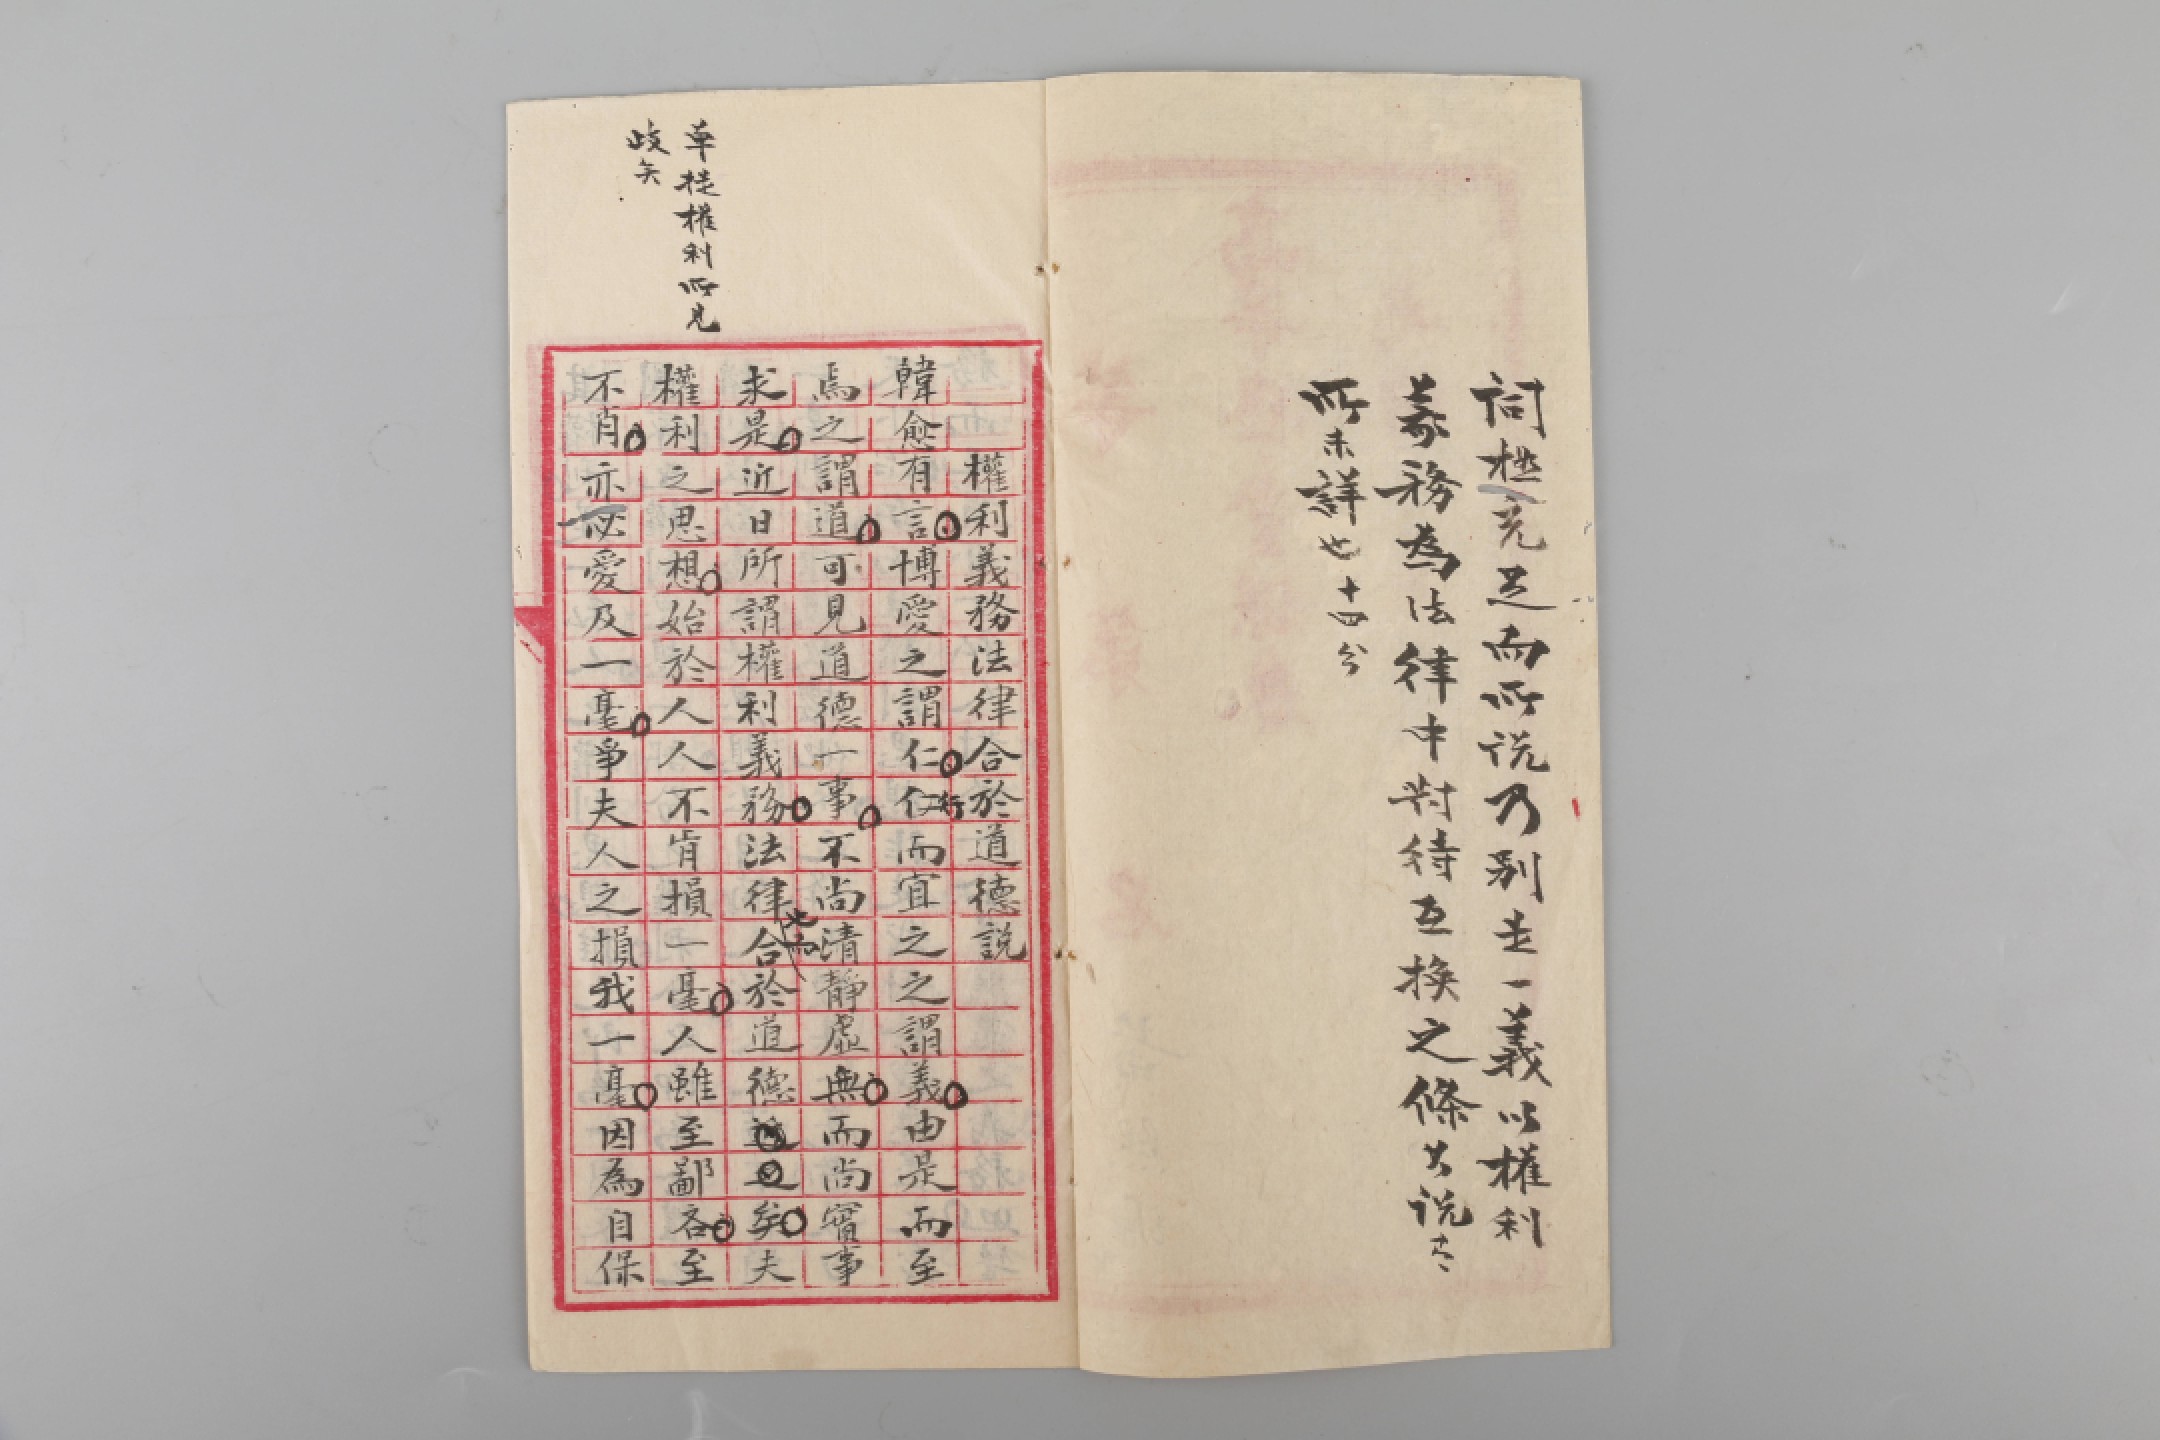 詞極充足而所说乃别走一義以權利
義務為法律中對待互換之條公说
所未詳也十四分
單提權利所見
歧矣
權利義務法律合於道德説
韓愈有言博愛之謂仁行而宜之之謂義由是而至
焉之謂道可見道德一事不尚清靜虛無而尚實事
求是近日所謂權利義務法律也和合於道德矣夫
權利之思想始於人人不肯損一毫人雖至鄙吝至
不肖亦必愛及一毫爭夫人之損我一毫因為自保